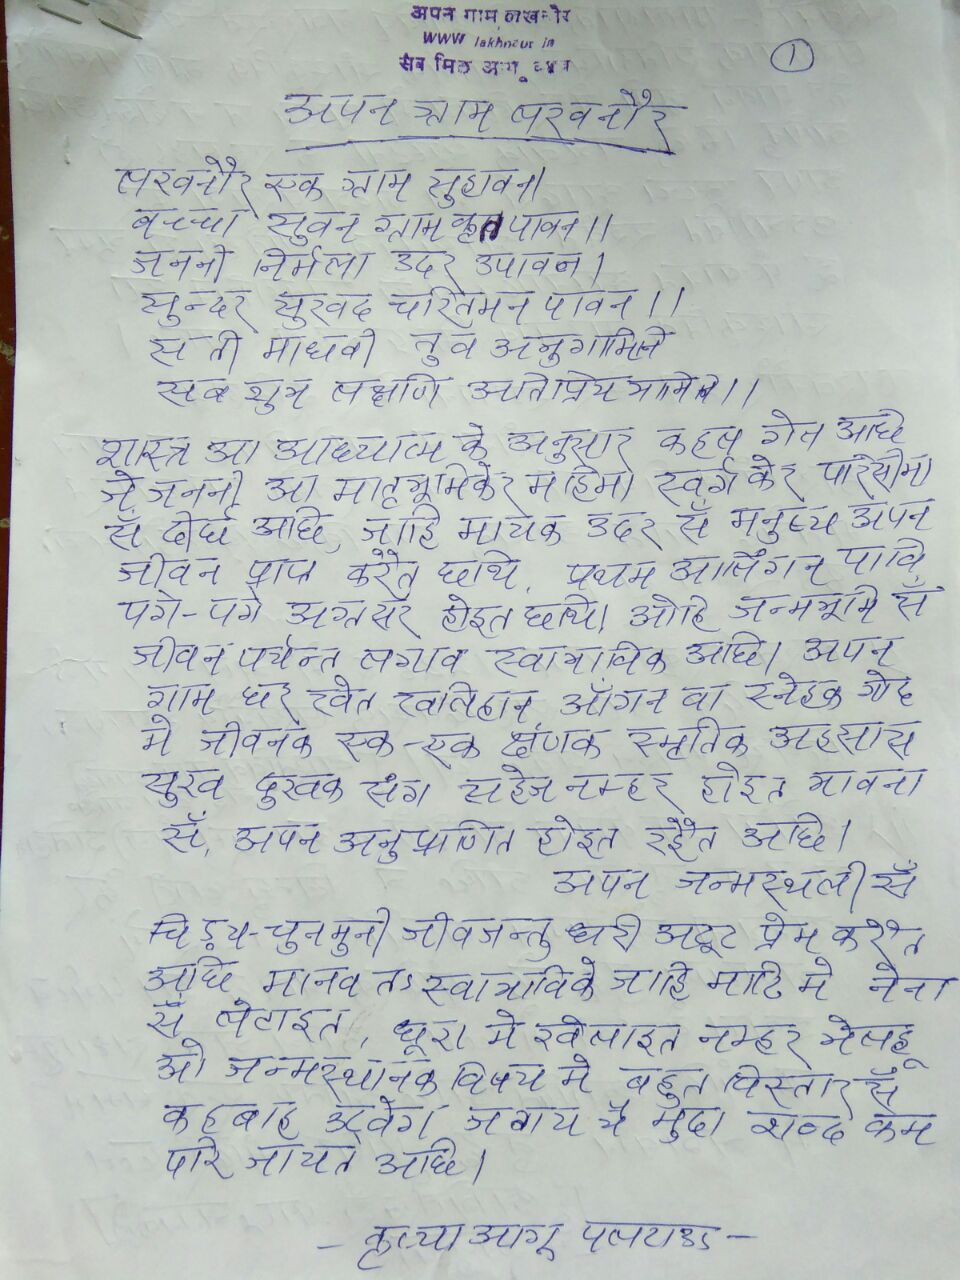 अपन गाम लखनौर
www lakhnaur in
सब मिल आगू बढब
1
अपन ग्राम लखनौर
लखनौर एक ग्राम सुहावन।
बच्चा सुवन ग्राम कृत पावन।।
जननी निर्मला उदर उपावन।
सुन्दर सुखद चरितमन पावन।।
सती माधवी तुव अनुगामिनि
सब शुभ लक्षणि अतिप्रिय भामिनि।।
शास्त्र आ आध्यात्म के अनुसार कहल गेल अछि
जे जननी आ मातृभूमिकेर महिमा स्वर्ग केर परिसीमा
सँ दीर्घ अछि, जाहि मायक उदर सँ मनुष्य अपन
जीवन प्राप्त करैत छथि, प्रथम आलिंगन पाबि,
पग-पग अग्रसर होइत छथि। ओहि जन्मभूमि सँ
जीवन पर्यन्त लगाव स्वाभाविक अछि। अपन
गाम घर खेत खलिहान, आँगन वा स्नेहक गोद
मे जीवनक एक-एक क्षणक स्मृतिक अहसास
सुख दुखक संग सहेज नम्हर होइत भावना
सँ, अपन अनुप्राणित होइत रहैत अछि।
अपन जन्मस्थली सँ
चिड़य-चुनमुनी जीवजन्तु धरी अटूट प्रेम करैत
अछि मानव तs स्वाभाविके जाहि माटि मे नेना
सँ लेटाइत, धूरा मे खेलाइत नम्हर भेलहू
ओ जन्मस्थानक विषय मे बहुत विस्तार सँ
कहबाह उद्वेग जगाय यै मुदा शब्द कम
परि जायत अछि।
- कृप्या आगू पलटाउ -